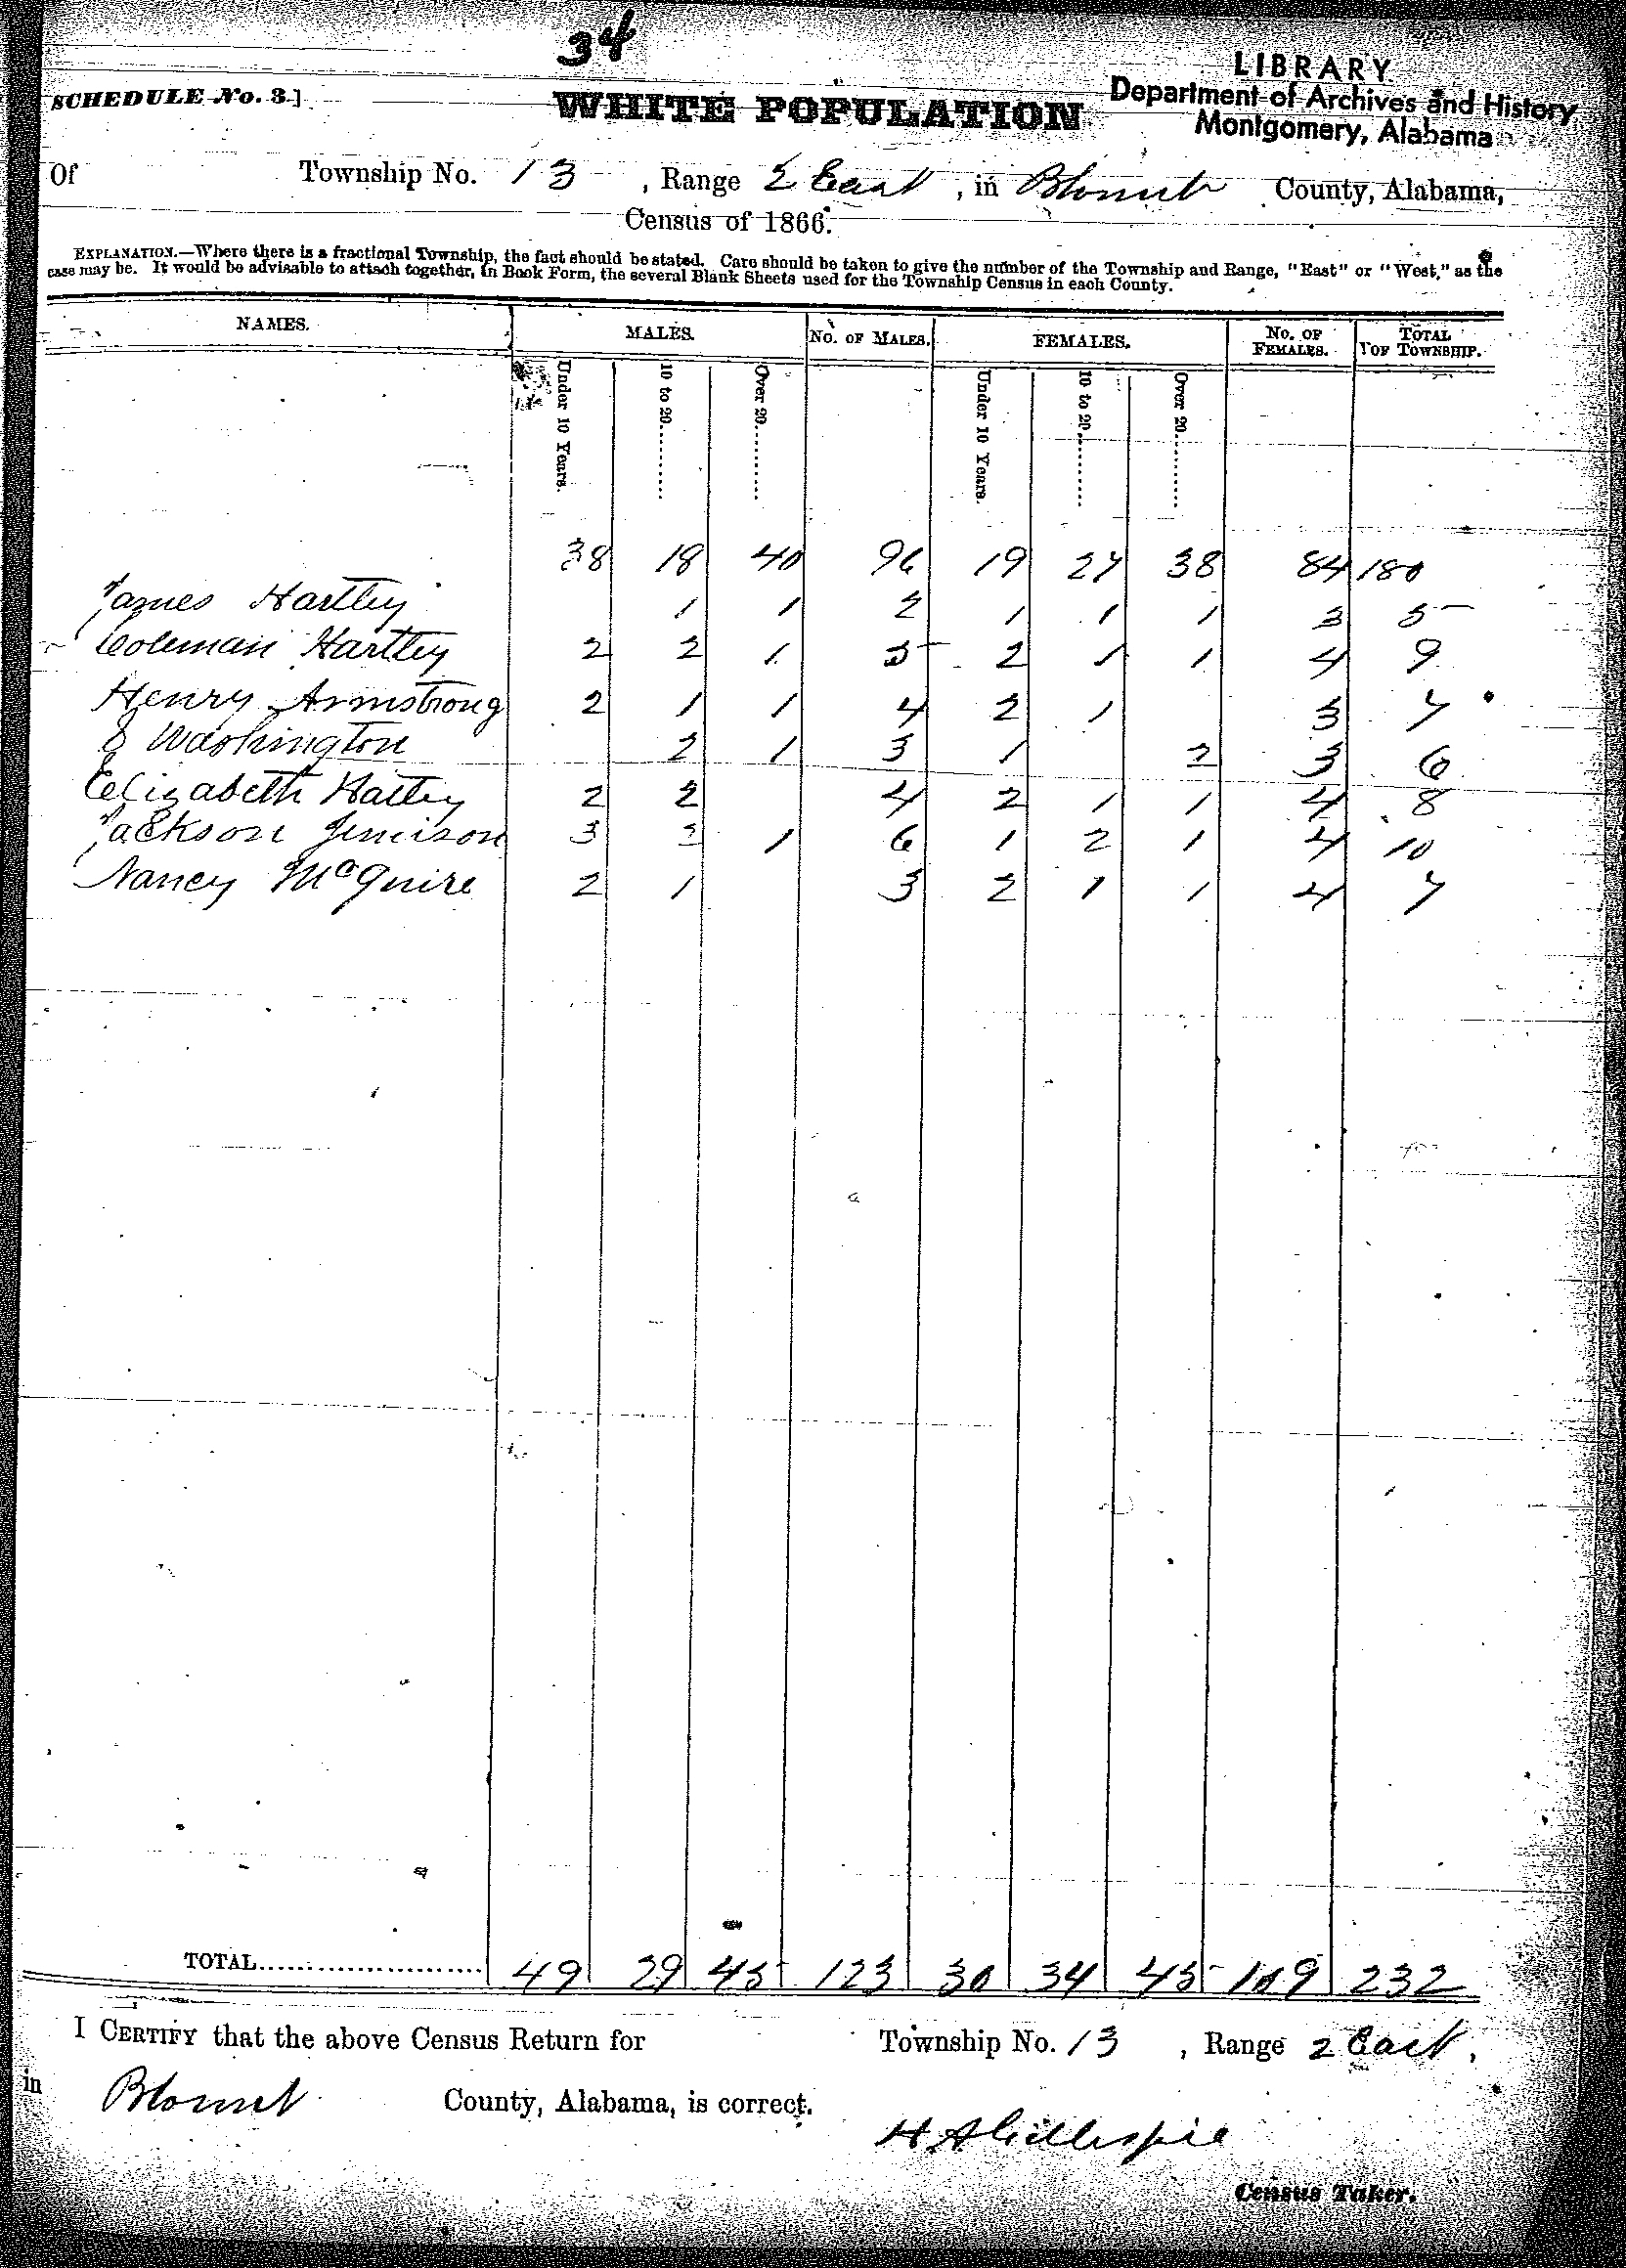 34
LIBRARY
Department of Archives and History
Montgomery, Alabama
SCHEDULE No. 3.]
WHITE POPULATION
Of Township No. 13, Range 2 East, in Blount County, Alabama,
Census of 1866.
EXPLANATION.—Where there is a fractional Township, the fact should be stated. Care should be taken to give the number of the Township and Range, "East" or "West," as the
case may be. It would be advisable to attach together, in Book Form, the several Blank Sheets used for the Township Census in each County.
NAMES. MALES. No. OF MALES. FEMALES. No. OF FEMALES. TOTAL OF TOWNSHIP.
Under 10 Years. 10 to 20......... Over 20......... Under 10 Years. 10 to 20......... Over 20.........
38 18 40 96 19 27 38 84 180
James Hartley 1 1 2 1 1 1 3 5
Coleman Hartley 2 2 1 5 2 1 1 4 9
Henry Armstrong 2 1 1 4 2 1 3 7
Washington 2 1 3 1 2 3 6
Elizabeth Hartley 2 2 4 2 1 1 4 8
Jackson Jemison 3 2 1 6 1 2 1 4 10
Nancy McGuire 2 1 3 2 1 1 4 7
TOTAL........................ 49 29 45 123 30 34 45 109 232
I CERTIFY that the above Census Return for Township No. 13, Range 2 East,
in Blount County, Alabama, is correct.
H A Gillespie
Census Taker.